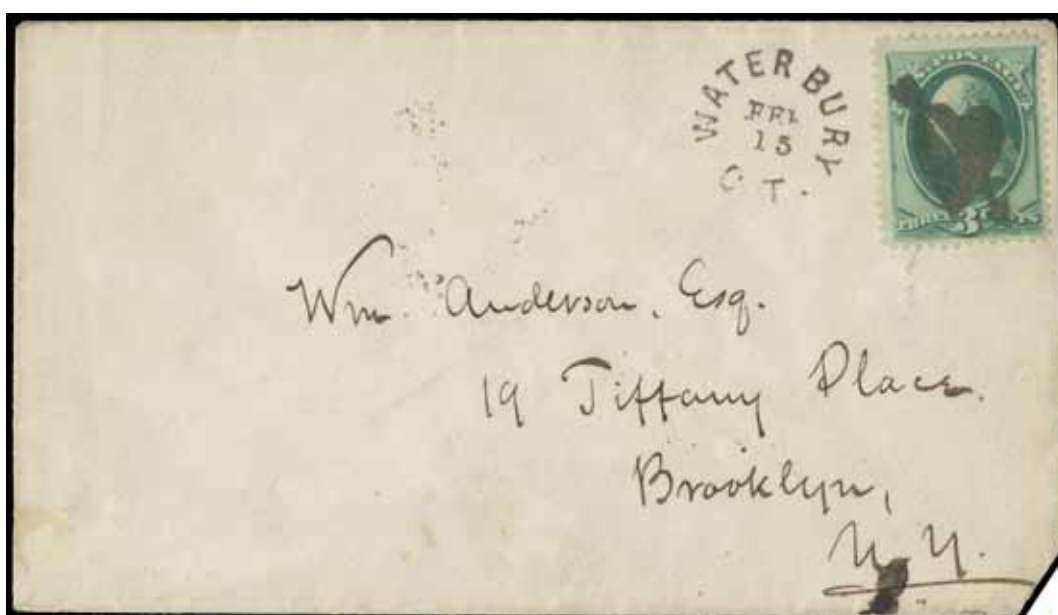 WATERBURY
FEB
15
CT.
U.S. POSTAGE
THREE 3 CENTS
Wm. Anderson, Esq.
19 Tiffany Place.
Brooklyn,
N.Y.